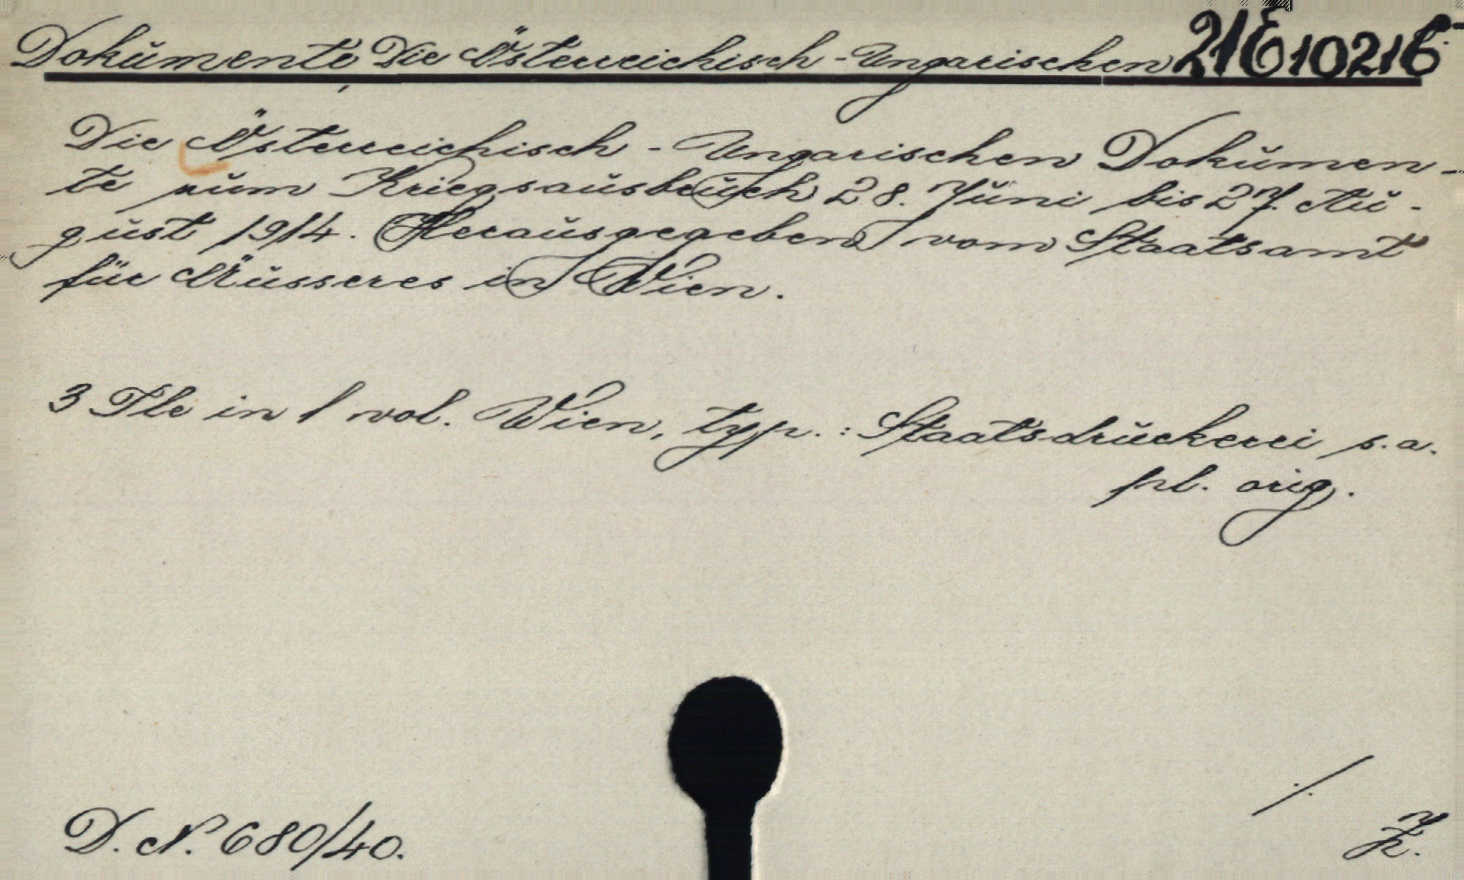 Dokumente, Die Österreichisch-Ungarischen 21E10216
Die Österreichisch-Ungarischen Dokumen-
te zum Kriegsausbruch 28. Juni bis 27. Au-
gust 1914. Herausgegeben vom Staatsamt
für Äusseres in Wien.
3 Tle in 1 vol. Wien, typ.: Staatsdruckerei s.a.
pl. orig.
./.
D. N. 680/40.